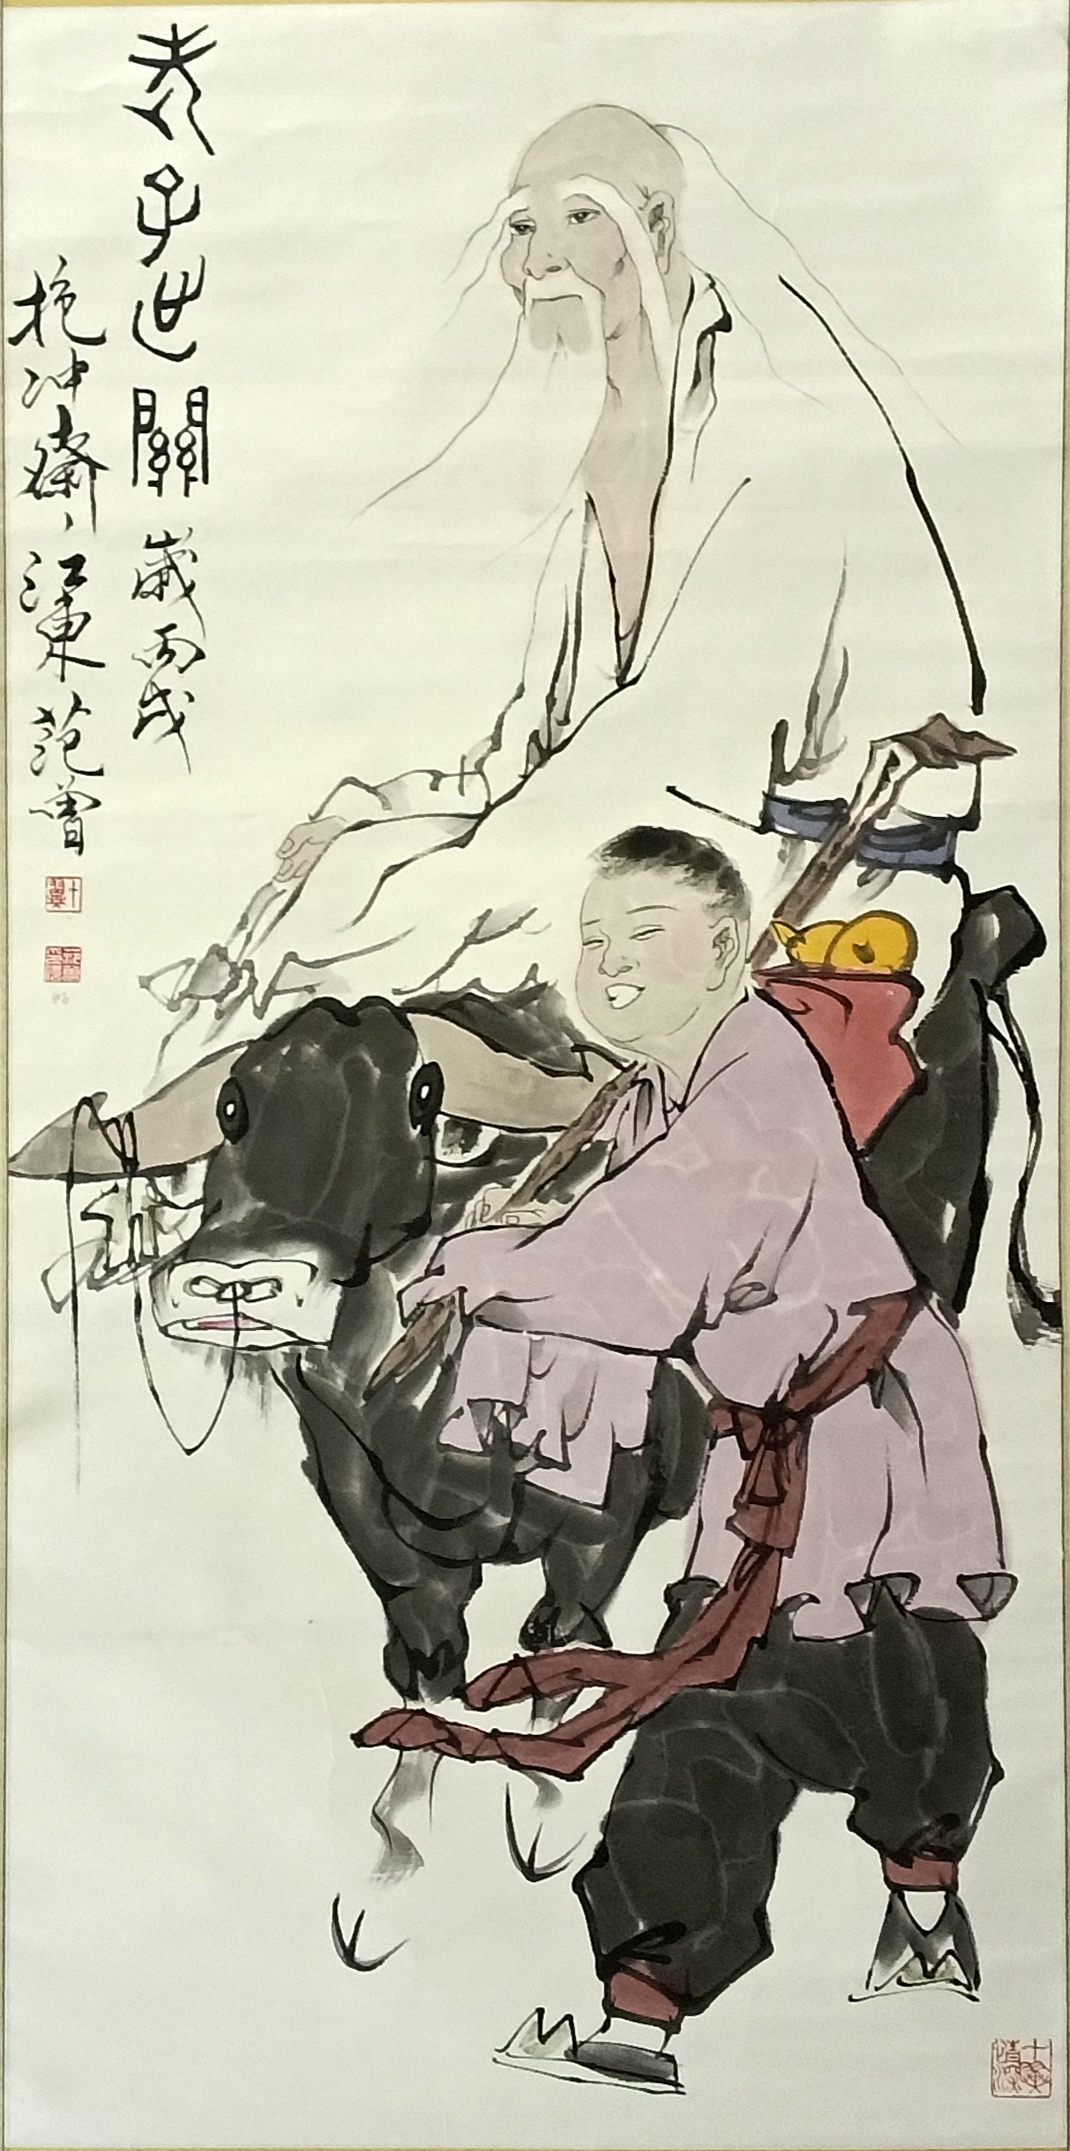 老子出關 歲丙戌
抱冲齋、江東范曾
十翼